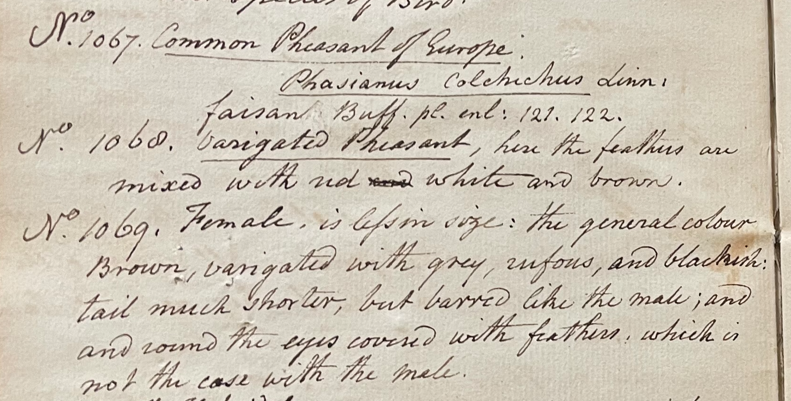 Species of Bird.
No. 1067. Common Pheasant of Europe.
Phasianus Colchichus Linn:
faisan Buff. pl. enl: 121. 122.
No. 1068. Varigated Pheasant, here the feathers are
mixed with red and white and brown.
No. 1069. Female. is lefs in size: the general colour
Brown, varigated with grey, rufous, and blackish:
tail much shorter, but barred like the male; and
and round the eyes covered with feathers. which is
not the case with the male.